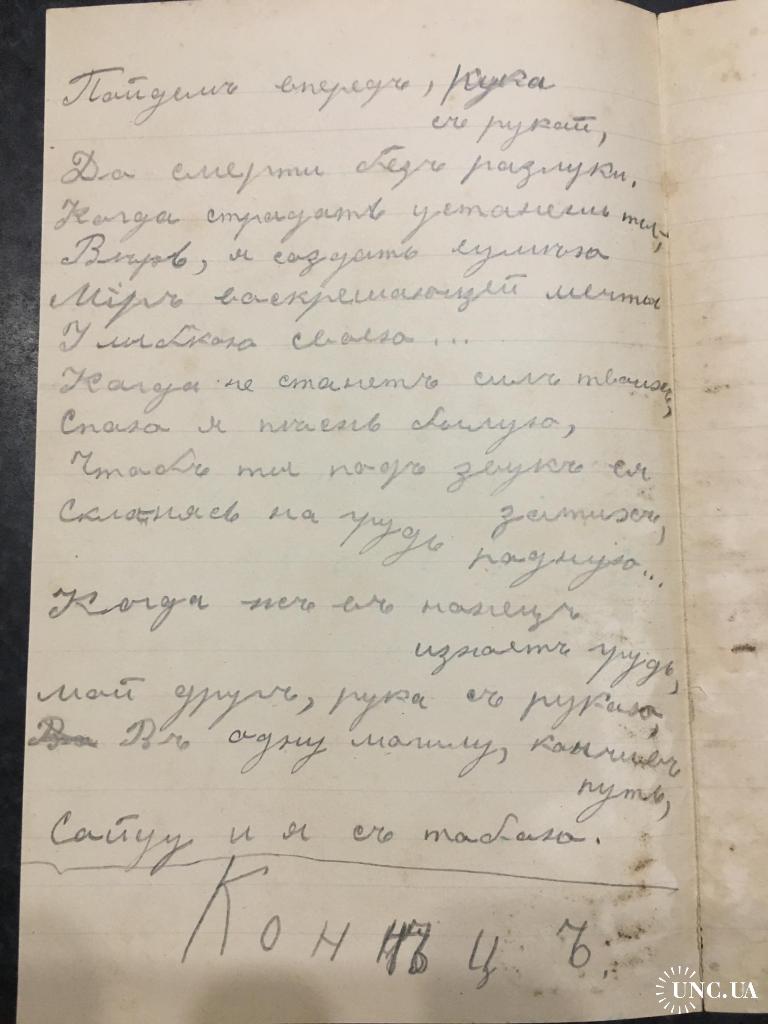 Пойдемъ впередъ, рука
съ рукой,
До смерти безъ разлуки.
Когда страдать устанешь ты,
Вѣрь, я создать сумѣю
Мiръ воскрешающей мечты
Улыбкою своею...
Когда не станетъ силъ твоихъ,
Спою я пѣснь былую,
Чтобъ ты подъ звукъ ея
затихъ,
Склонясь на грудь родную...
Когда жъ въ конецъ
изноетъ грудь,
мой другъ, рука съ рукою,
Въ одну могилу, кончивъ
путь,
Сойду и я съ тобою.
Конѣцъ.
UNC.UA